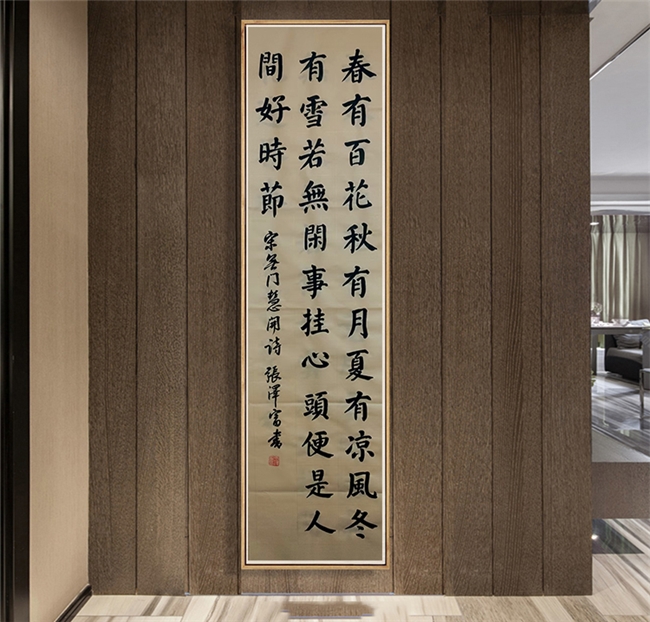 春有百花秋有月夏有凉風冬
有雪若無閑事挂心頭便是人
間好時節
宋无门慧開诗 張澤富書